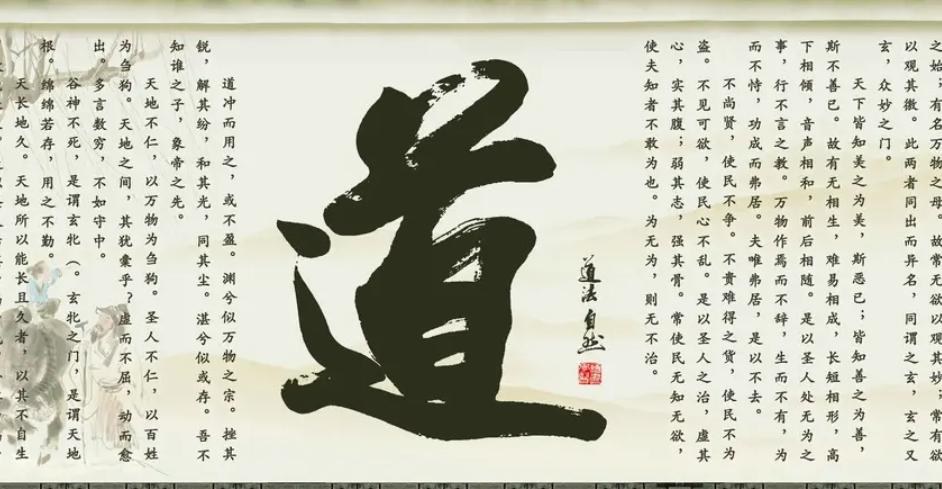 之始；有名万物之母。故常无欲以观其妙；常有欲
以观其徼。此两者同出而异名，同谓之玄，玄之又
玄，众妙之门。
天下皆知美之为美，斯恶已；皆知善之为善，
斯不善已。故有无相生，难易相成，长短相形，高
下相倾，音声相和，前后相随。是以圣人处无为之
事，行不言之教。万物作焉而不辞，生而不有，为
而不恃，功成而弗居。夫唯弗居，是以不去。
不尚贤，使民不争。不贵难得之货，使民不为
盗。不见可欲，使民心不乱。是以圣人之治，虚其
心，实其腹；弱其志，强其骨。常使民无知无欲，
使夫知者不敢为也。为无为，则无不治。
道法自然
道
道冲而用之，或不盈。渊兮似万物之宗。挫其
锐，解其纷，和其光，同其尘。湛兮似或存。吾不
知谁之子，象帝之先。
天地不仁，以万物为刍狗。圣人不仁，以百姓
为刍狗。天地之间，其犹囊乎？虚而不屈，动而愈
出。多言数穷，不如守中。
谷神不死，是谓玄牝（。玄牝之门，是谓天地
根。绵绵若存，用之不勤。
天长地久。天地所以能长且久者，以其不自生